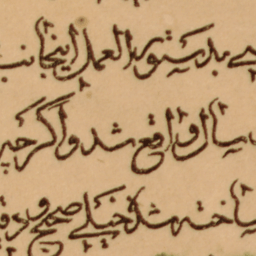 بدستور العمل اینجانب
سال واقع شد و اگرچه
ساخته شد خیلی صحیح و